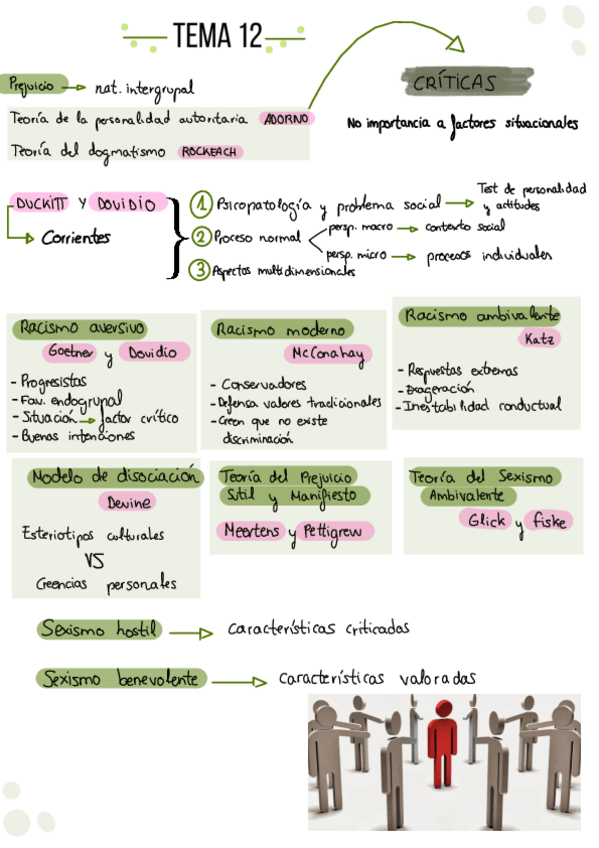 TEMA 12
Prejuicio → nat. intergrupal
Teoría de la personalidad autoritaria ADORNO
Teoría del dogmatismo ROCKEACH
CRÍTICAS
No importancia a factores situacionales
DUCKITT Y DOVIDIO
→ Corrientes
1 Psicopatología y problema social → Test de personalidad
y actitudes
2 Proceso normal
persp. macro → contexto social
persp. micro → procesos individuales
3 Aspectos multidimensionales
Racismo aversivo
Goetner y Dovidio
- Progresistas
- Fav. endogrupal
- Situación → factor crítico
- Buenas intenciones
Racismo moderno
McConahay
- Conservadores
- Defensa valores tradicionales
- Creen que no existe
discriminación
Racismo ambivalente
Katz
- Respuestas extremas
- Exageración
- Inestabilidad conductual
Modelo de disociación
Devine
Esteriotipos culturales
VS
Creencias personales
Teoría del Prejuicio
Sútil y Manifiesto
Meertens y Pettigrew
Teoría del Sexismo
Ambivalente
Glick y Fiske
Sexismo hostil → características criticadas
Sexismo benevolente → características valoradas